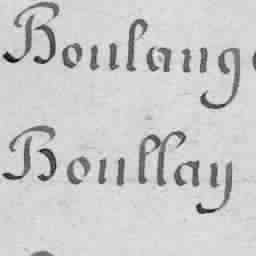 Boulang
Boullay